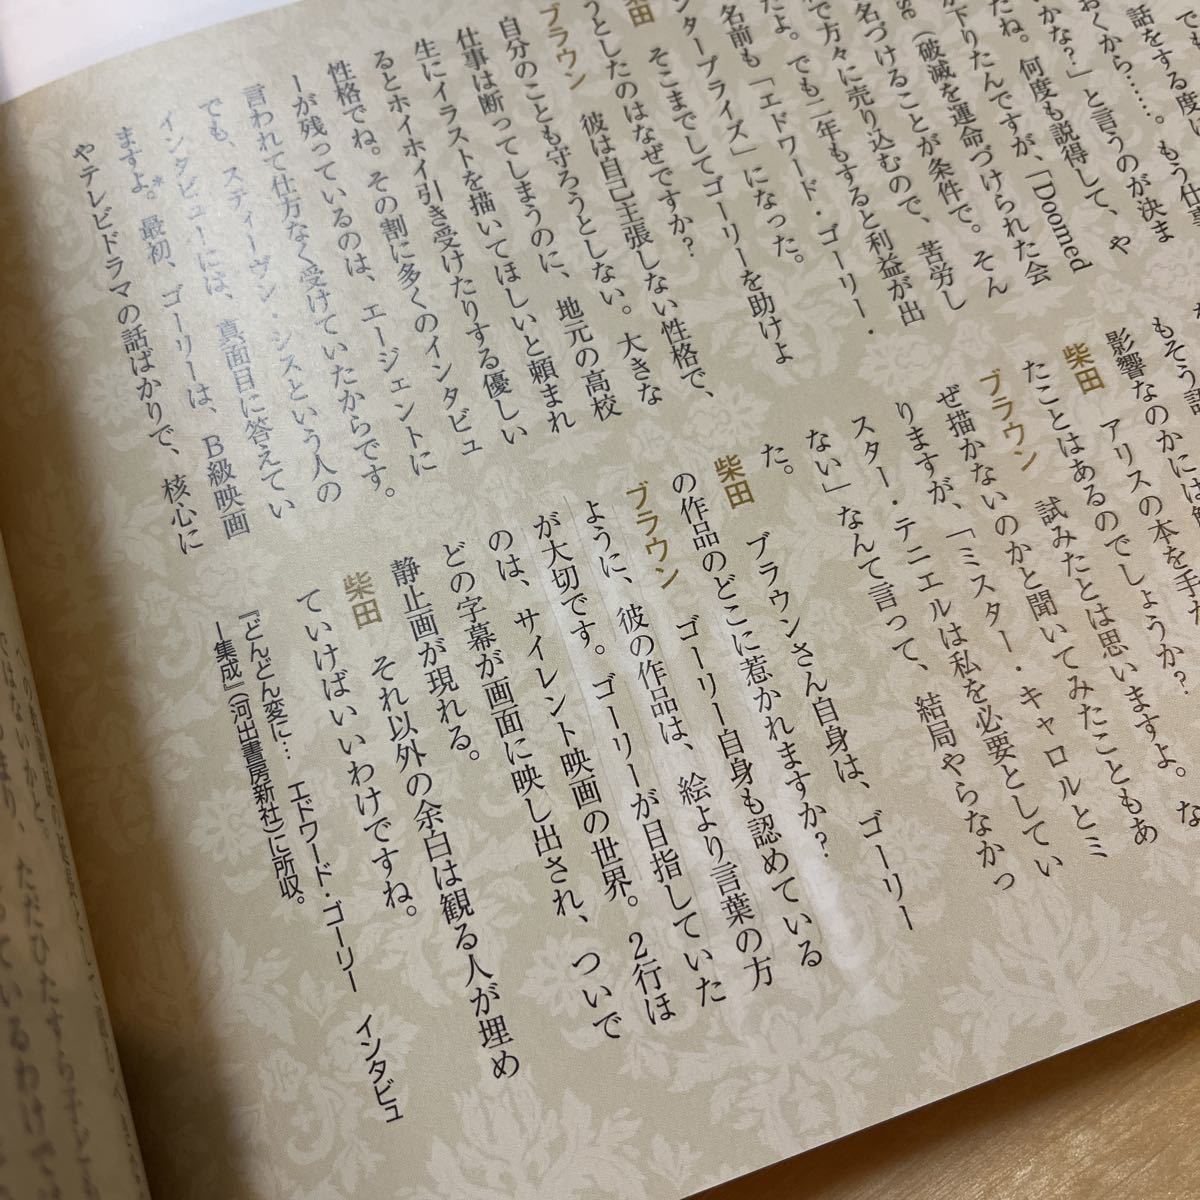 でも
話をする度に
おくから……。もう仕事
いかな?」と言うのが決ま
たね。何度も説得して、や
が下りたんですが、「Doomed
se(破滅を運命づけられた会
名づけることが条件で。そん
で方々に売り込むので、苦労し
たよ。でも二年もすると利益が出
名前も「エドワード・ゴーリー・
ンタープライズ」になった。
柴田 そこまでしてゴーリーを助けよ
うとしたのはなぜですか?
ブラウン 彼は自己主張しない性格で、
自分のことも守ろうとしない。大きな
仕事は断ってしまうのに、地元の高校
生にイラストを描いてほしいと頼まれ
るとホイホイ引き受けたりする優しい
性格でね。その割に多くのインタビュ
ーが残っているのは、エージェントに
言われて仕方なく受けていたからです。
でも、スティーヴン・シスという人の
インタビューには、真面目に答えてい
ますよ。*最初、ゴーリーは、B級映画
やテレビドラマの話ばかりで、核心に
影響なのかには
柴田 アリスの本を手が
たことはあるのでしょうか?
ブラウン 試みたとは思いますよ。な
ぜ描かないのかと聞いてみたこともあ
りますが、「ミスター・キャロルとミ
スター・テニエルは私を必要としてい
ない」なんて言って、結局やらなかっ
た。
柴田 ブラウンさん自身は、ゴーリー
の作品のどこに惹かれますか?
ブラウン ゴーリー自身も認めている
ように、彼の作品は、絵より言葉の方
が大切です。ゴーリーが目指していた
のは、サイレント映画の世界。2行ほ
どの字幕が画面に映し出され、ついで
静止画が現れる。
柴田 それ以外の余白は観る人が埋め
ていけばいいわけですね。
『どんどん変に… エドワード・ゴーリー インタビュ
ー集成』(河出書房新社)に所収。
ではないかと。